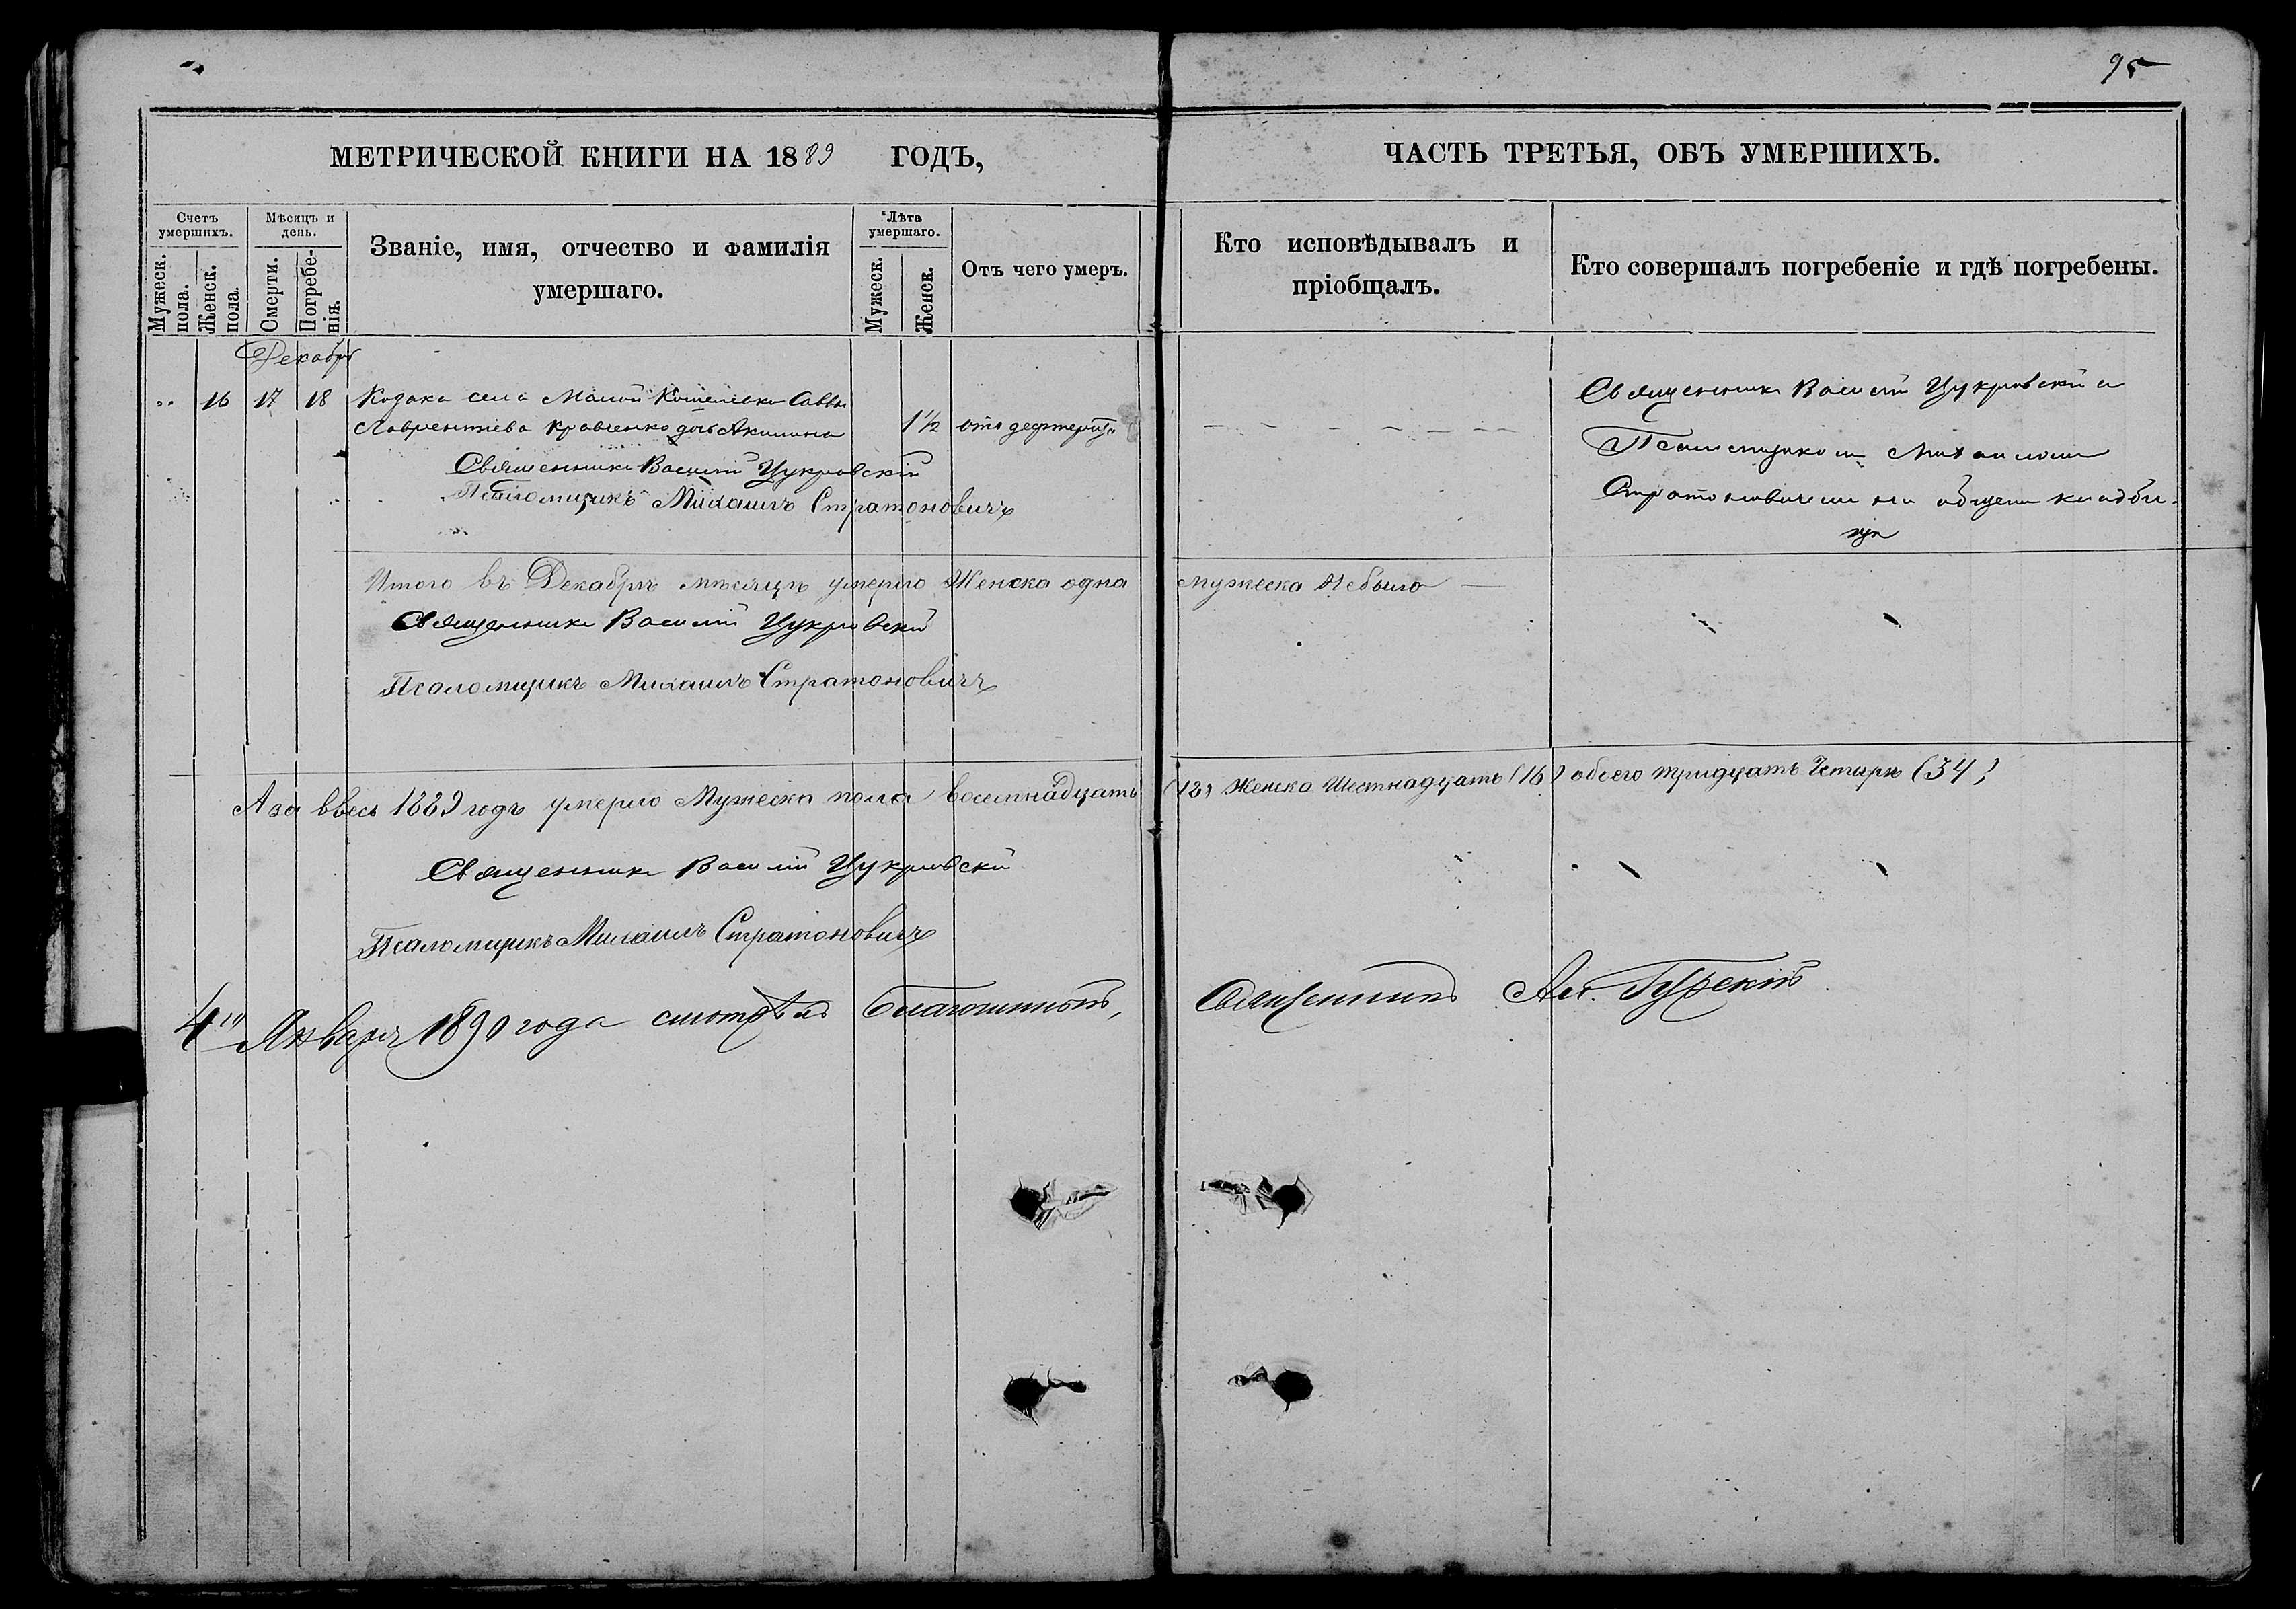 95
МЕТРИЧЕСКОЙ КНИГИ НА 1889 ГОДЪ,
ЧАСТЬ ТРЕТЬЯ, ОБЪ УМЕРШИХЪ.
Счетъ умершихъ.
Мужеск. пола.
Женск. пола.
Мѣсяцъ и день.
Смерти.
Погребе-нія.
Званіе, имя, отчество и фамилія
умершаго.
Лѣта умершаго.
Мужеск.
Женск.
Отъ чего умеръ.
Кто исповѣдывалъ и
пріобщалъ.
Кто совершалъ погребеніе и гдѣ погребены.
Декабрь
" 16 17 18 Козака села Малой Кошелевки Саввы
Лаврентіева Кравченко дочь Акилина 1½ отъ дефтерита
Священникъ Василій Цукровскій
Псаломщикъ Михаилъ Стратоновичъ
Священникъ Василій Цукровскій съ
Псаломщикомъ Михаиломъ
Стратоновичемъ на общемъ кладби-
щѣ
Итого въ Декабрѣ мѣсяцѣ умерло Женска одна мужеска небыло
Священникъ Василій Цукровскій
Псаломщикъ Михаилъ Стратоновичъ
А за ввесь 1889 годъ умерло Мужеска пола восемнадцать (18) Женска Шестнадцать (16) обоего тридцать Четыре (34)
Священникъ Василій Цукровскій
Псаломщикъ Михаилъ Стратоновичъ
4го Января 1890 года смотрѣлъ Благочинный, Священникъ